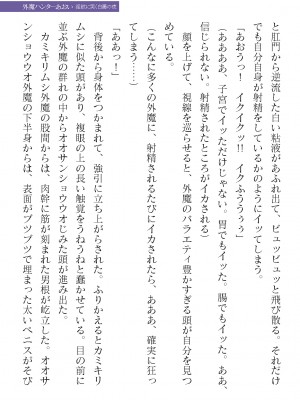 外魔ハンターあおい
と肛門から逆流した白い粘液があふれ出て、ビュッビュッと飛び散る。それだけ
でも自分自身が射精をしているかのようにイッてしまう。
「あおうっ！　イクイクッ！　イクふううぅっ」
（ああああ、子宮でイッただけじゃない。胃でもイッた。腸でもイッた。ああ、
信じられない。射精されたところがイカされる）
顔を上げて、視線を巡らせると、外魔のバラエティ豊かすぎる頭が自分を見つ
めている。
（こんなに多くの外魔に、射精されるたびにイカされたら、あああ、確実に狂っ
てしまう……）
「ああっ！」
背後から身体をつかまれて、強引に立ち上がらされた。ふりかえるとカミキリ
ムシに似た頭があり、複眼の上の長い触覚をうねうねと蠢かせている。目の前に
並ぶ外魔の群れの中からオオサンショウウオじみた頭が進み出た。
カミキリムシ外魔の股間からは、肉幹に筋が刻まれた男根が屹立した。オオサ
ンショウウオ外魔の下半身からは、表面がブツブツで埋まった太いペニスがそび